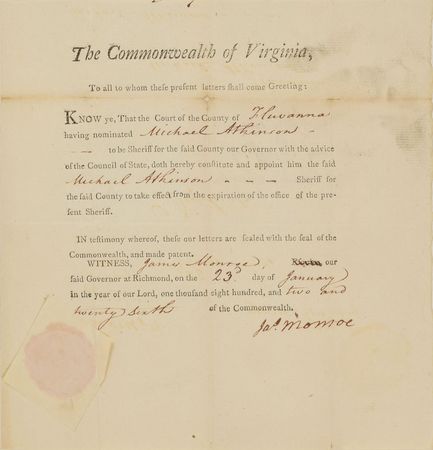 The Commonwealth of Virginia,
To all to whom theſe preſent letters ſhall come Greeting:
KNOW ye, That the Court of the County of Fluvanna
having nominated Michael Atkinson -
— — to be Sheriff for the ſaid County our Governor with the advice
of the Council of State, doth hereby conſtitute and appoint him the ſaid
Michael Atkinson - - - Sheriff for
the ſaid County to take effect from the expiration of the office of the pre-
ſent Sheriff.
IN teſtimony whereof, theſe our letters are ſealed with the ſeal of the
Commonwealth, and made patent.
WITNESS, James Monroe, our
ſaid Governor at Richmond, on the 23d day of January
in the year of our Lord, one thouſand eight hundred, and two and
twenty sixth of the Commonwealth.
Jas. Monroe